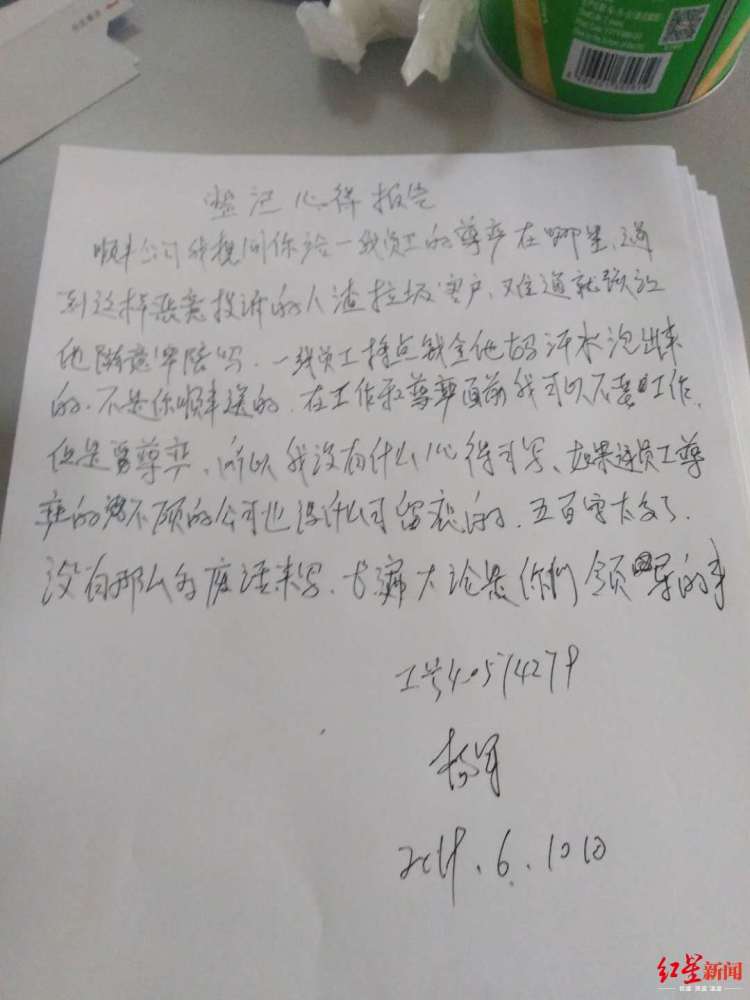 登记心得报告
顺丰公司我想问你给一线员工的尊严在哪里、遇
到这样恶意投诉的人渣垃圾客户、难道就该让
他随意 吗.一线员工挣点钱全他妈汗水泡出来
的.不是你顺丰送的.在工作和尊严面前我可以不要工作、
但是要尊严、所以我没有什么心得可写、如果连员工尊
严的都不顾的公司也没什么可留恋的.五百字太多了、
没有那么多废话来写、长篇大论是你们领导的事
工号40574279
杨军
6.10日
红星新闻